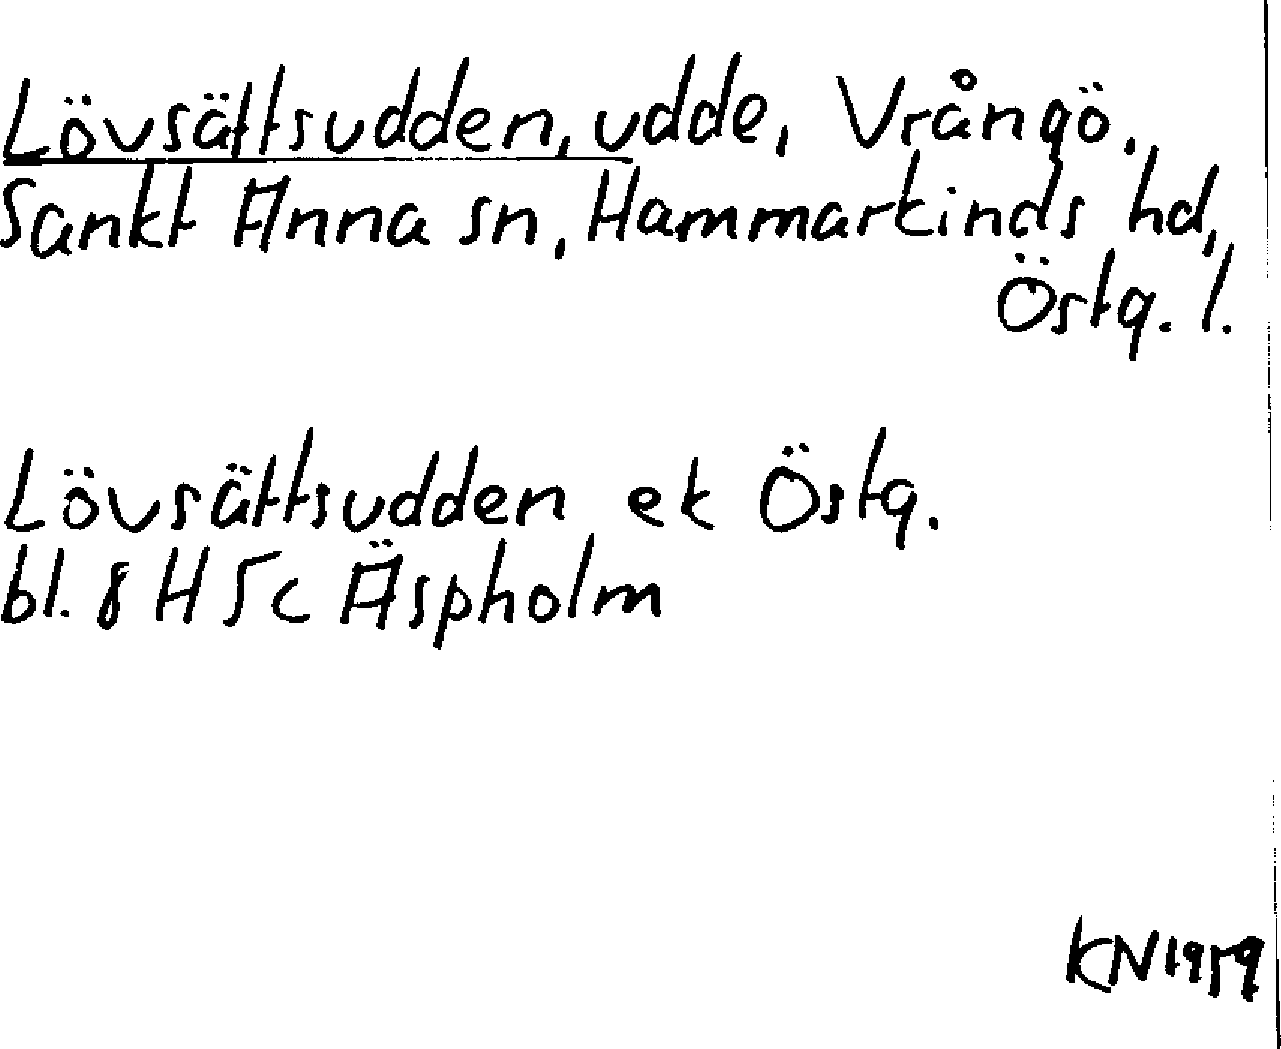 Lövsättsudden, udde, Vrångö.
Sankt Anna sn, Hammarkinds hd,
Östg. l.
Lövsättsudden ek Östg.
bl. 8 H 5c Äspholm
KN 1959